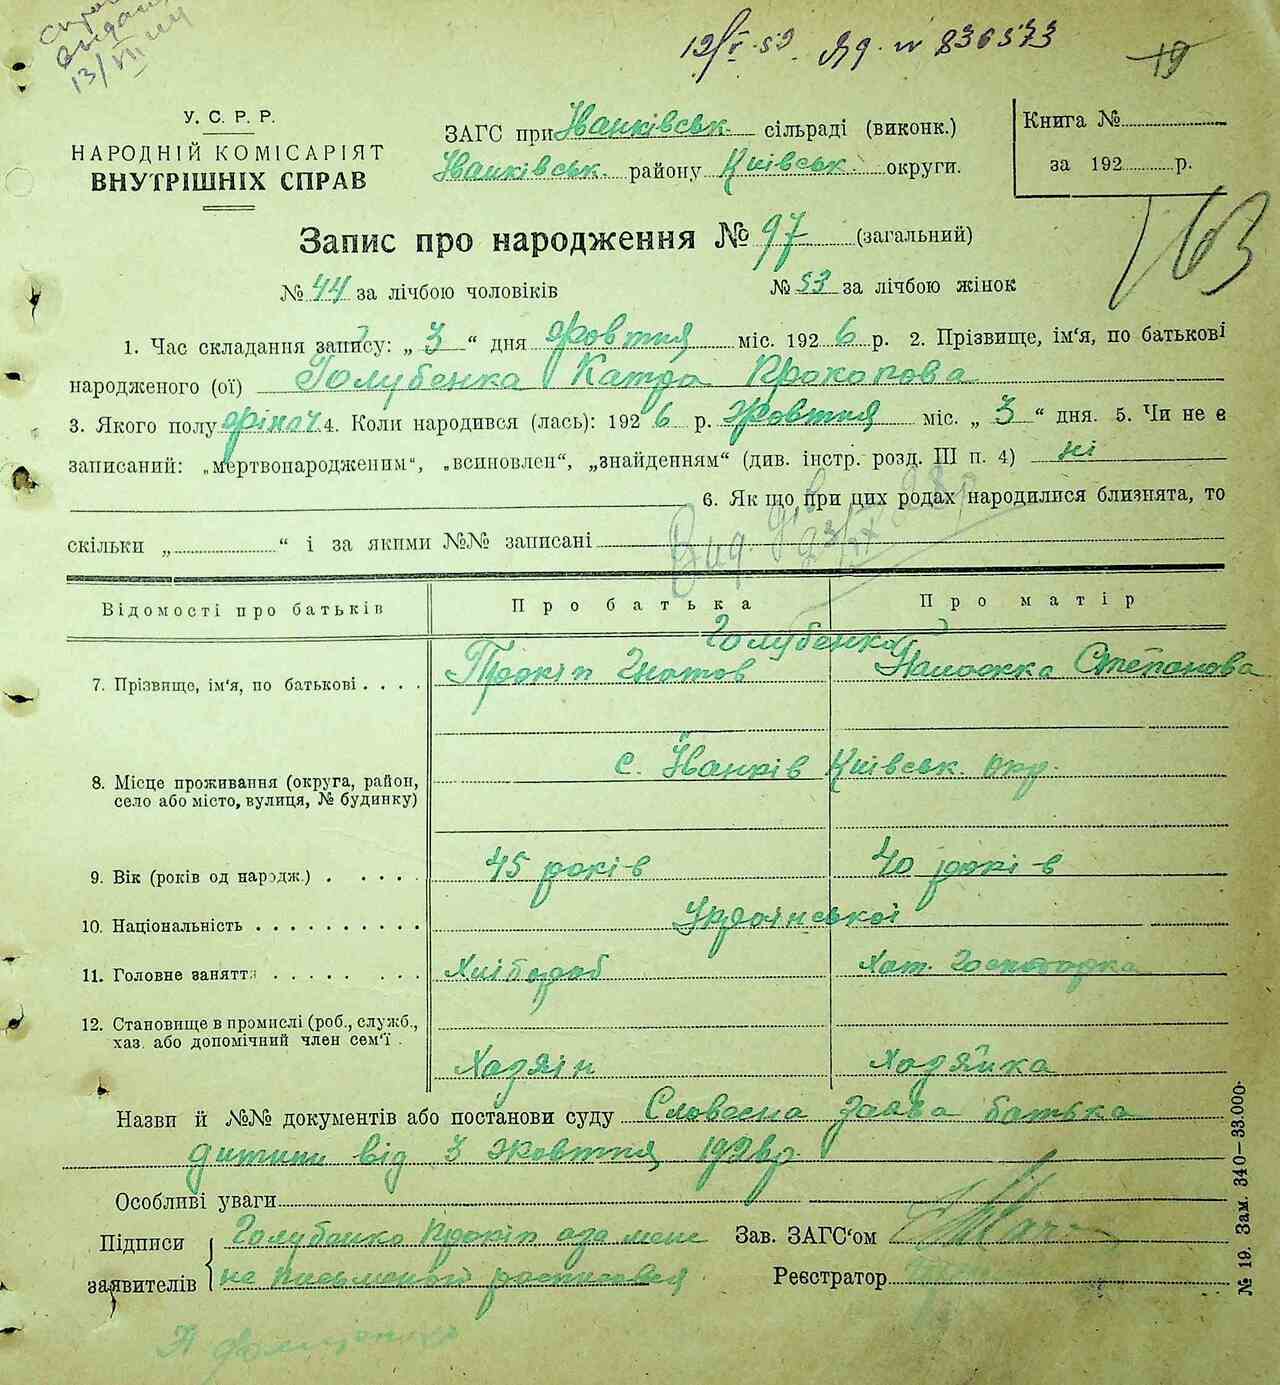 12/V.53 яд. № 836573
19
13/VII
У. С. Р. Р.
НАРОДНІЙ КОМІСАРІЯТ
ВНУТРІШНІХ СПРАВ
ЗАГС при Іванківськ. сільраді (виконк.)
Іванківськ. району Київськ. округи.
Книга №
за 192 р.
163
Запис про народження № 97 (загальний)
№ 44 за лічбою чоловіків № 53 за лічбою жінок
1. Час складання запису: „ 3 “ дня жовтня міс. 192 6 р. 2. Прізвище, ім‘я, по батькові
народженого (ої) Голубенка Катра Прокопова
3. Якого полу жіноч. 4. Коли народився (лась): 192 6 р. жовтня міс. „ 3 “ дня. 5. Чи не є
записаний: „мертвонародженим“, „всиновлен“, „знайденням“ (див. інстр. розд. III п. 4) ні
6. Як що при цих родах народилися близнята, то
скільки „ “ і за якими №№ записані
Вид.
Відомості про батьків Про батька Про матір
Голубенка
7. Прізвище, ім‘я, по батькові . . . . Прокіп Гнатов Степанова
с. Іванків Київськ. окр.
8. Місце проживання (округа, район,
село або місто, вулиця, № будинку)
9. Вік (років од народж.) . . . . . 45 років 40 років
10. Національність . . . . . . . . . . Української
11. Головне заняття . . . . . . . Хлібороб Хат. Господарка
12. Становище в промислі (роб., служб.,
хаз. або допомічний член сем‘ї .
Хазяїн Хазяйка
Назви й №№ документів або постанови суду Словесна заява батька
дитини від 3 жовтня 1926 р.
Особливі уваги
Підписи Голубенко Прокіп а за мене Зав. ЗАГС‘ом
заявителів не письменой росписався Реєстратор
№ 19. Зам. 340—33.000.